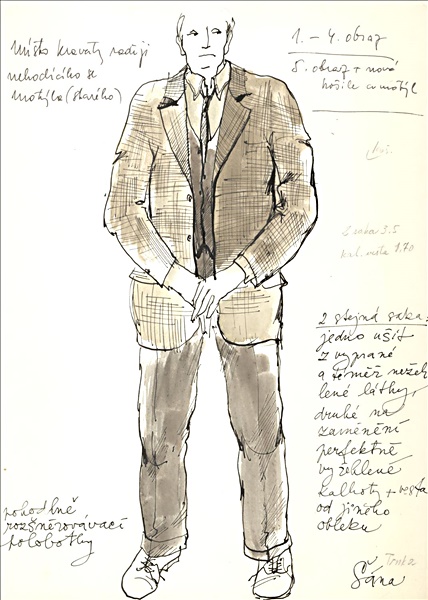 Místo kravaty raději
nehodícího se
motýla (starého)
1. – 4. obraz
5. obraz + nová
košile a motýl
2 saka 3.5
kal. vesta 1.70
2 stejná saka:
jedno ušít
z vyprané
a téměř nežeh
lené látky,
druhé na
zaměnění
perfektně
vyžehlené
kalhoty + vesta
od jiného
obleku
pohodlné
rozšněrovávací
polobotky
Šána